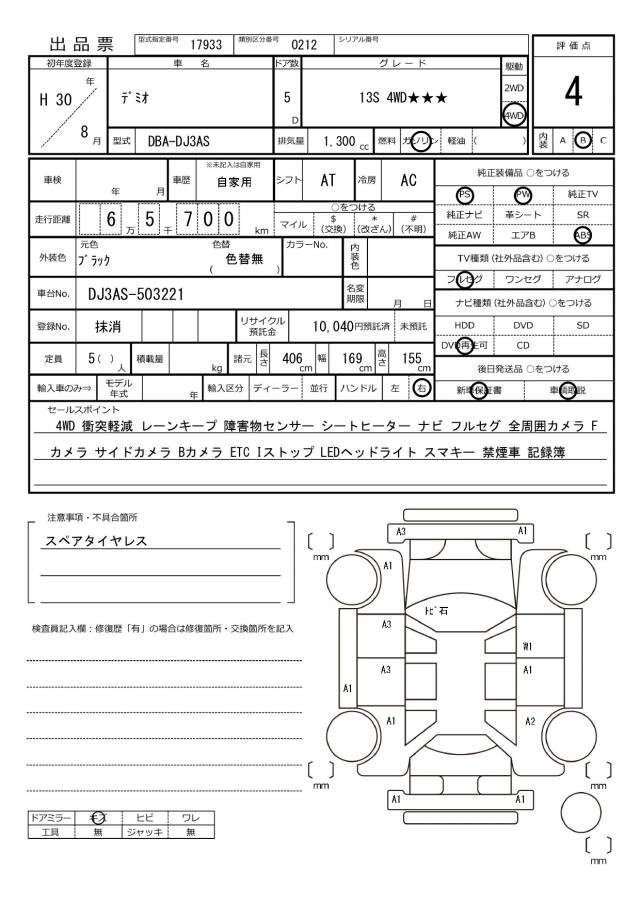 出品票
型式指定番号 17933 類別区分番号 0212 シリアル番号
評価点
4
内装 A B C
初年度登録 車名 ドア数 グレード 駆動
H 30 年 8 月
デミオ
5 D
13S 4WD★★★
2WD
4WD
型式 DBA-DJ3AS 排気量 1.300 cc 燃料 ガソリン 軽油 ( )
車検 年 月 車歴 ※未記入は自家用 自家用 シフト AT 冷房 AC
走行距離 6 万 5 千 7 0 0 km
○をつける
マイル $(交換) *(改ざん) #(不明)
外装色 元色 ブラック 色替 ( 色替無 ) カラーNo. 内装色
車台No. DJ3AS-503221 名変期限 月 日
登録No. 抹消 リサイクル預託金 10,040円預託済 未預託
定員 5( )人 積載量 kg 諸元 長さ 406 cm 幅 169 cm 高さ 155 cm
輸入車のみ⇒ モデル年式 年 輸入区分 ディーラー 並行 ハンドル 左 右
純正装備品 ○をつける
PS PW 純正TV
純正ナビ 革シート SR
純正AW エアB ABS
TV種類(社外品含む) ○をつける
フルセグ ワンセグ アナログ
ナビ種類(社外品含む) ○をつける
HDD DVD SD
DVD再生可 CD
後日発送品 ○をつける
新車保証書 車輌取説
セールスポイント
4WD 衝突軽減 レーンキープ 障害物センサー シートヒーター ナビ フルセグ 全周囲カメラ F
カメラ サイドカメラ Bカメラ ETC Iストップ LEDヘッドライト スマキー 禁煙車 記録簿
注意事項・不具合箇所
スペアタイヤレス
検査員記入欄：修復歴「有」の場合は修復箇所・交換箇所を記入
ドアミラー キズ ヒビ ワレ
工具 無 ジャッキ 無
A3 A1
[ ] mm [ ] mm
A1
トビ石
A3
W1
A3 A1
A1
A1 A2
[ ] mm [ ] mm
A1 A1
[ ] mm